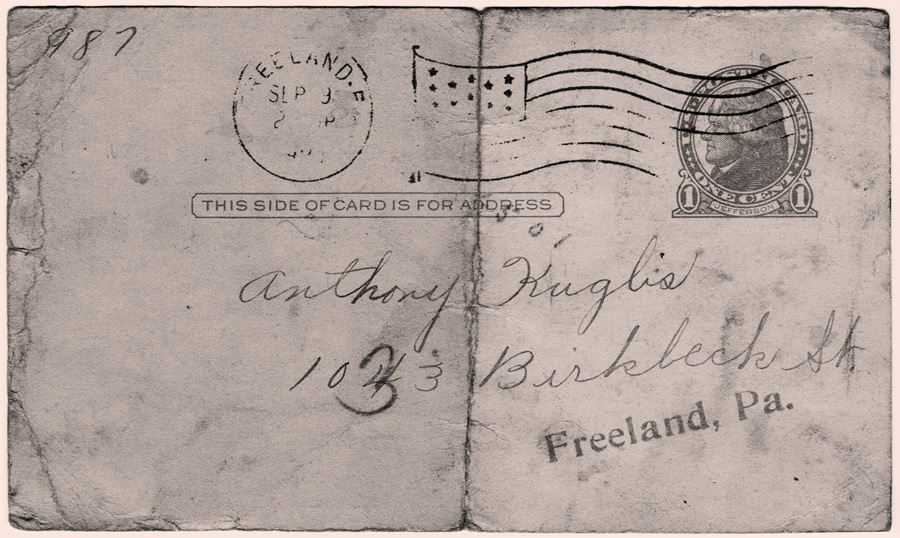 987
FREELAND.
SEP 9
2 P
THIS SIDE OF CARD IS FOR ADDRESS
1 JEFFERSON 1
Anthony Kuglis
1043 Birkbeck St
Freeland, Pa.